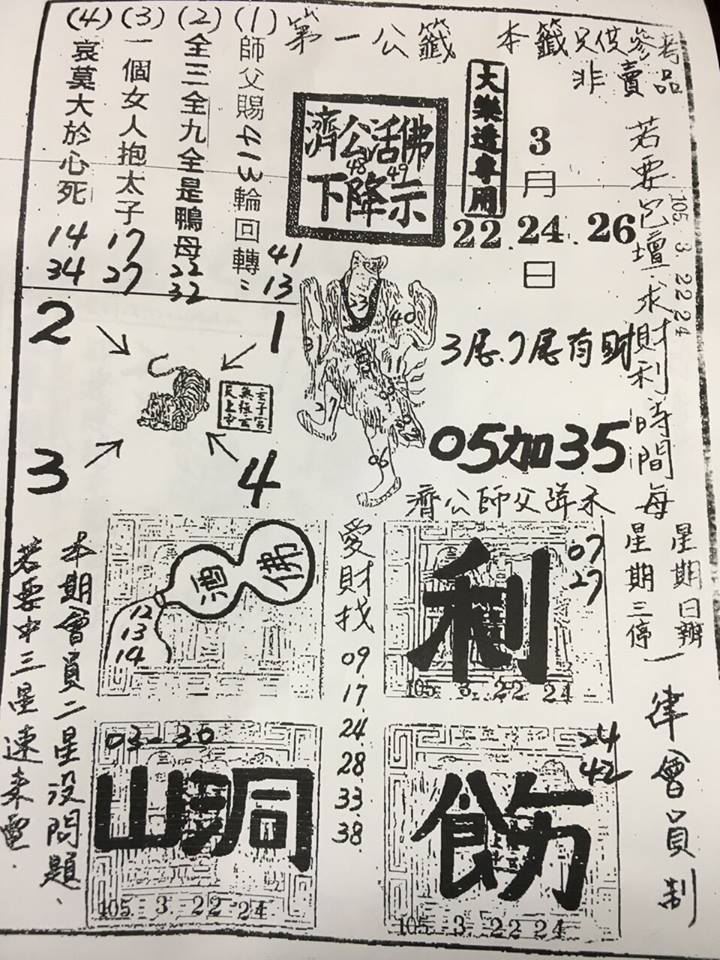 第一公籤 本籤只供參考品
非賣品
(1) 師父賜413輪回轉：41 13
(2) 全三全九全是鴨母 22 32
(3) 一個女人抱太子 17 27
(4) 哀莫大於心死 14 34
濟公活佛
48 49
下降示
大樂透專用
3月
22.24.26
日
105.3.22 24
若要包壇求財利時間每
星期日辦
星期三停
一律會員制
2
1
3
4
40
27
06
3尾.7尾有財
05加35
濟公師父降示
佛
酒
12
13
14
愛財找
09
17
24
28
33
38
利
07
27
105 3. 22 24
03-30
山洞
105 3. 22 24
24
42
105 3. 22 24
本期會員二星沒問題.
若要中三星速來電.